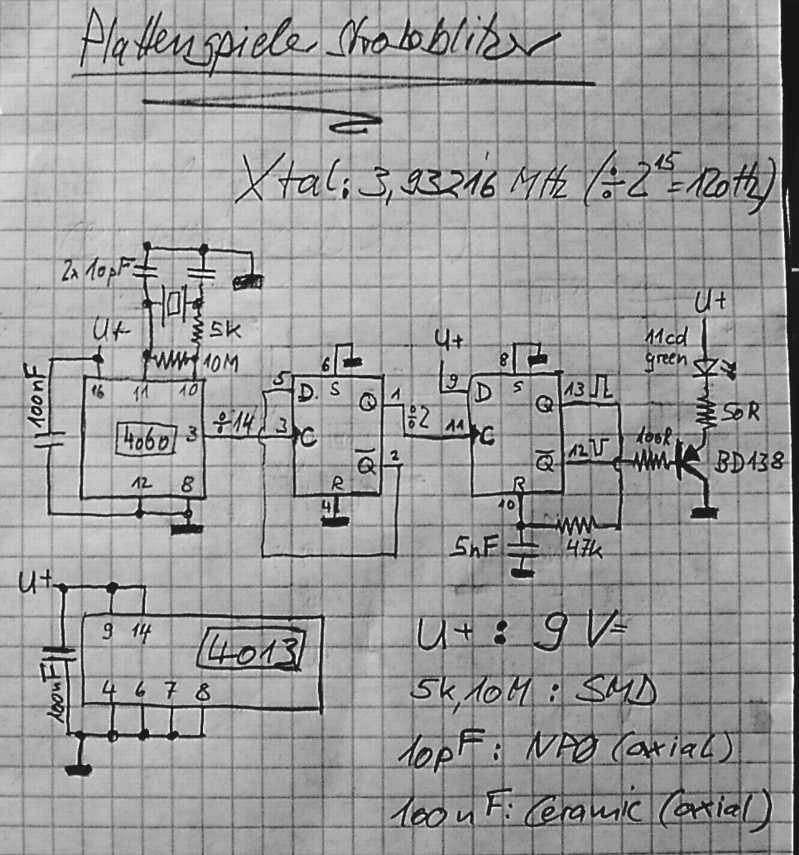 Plattenspieler Stroboblitzer
Xtal: 3,93216 MHz (÷2¹⁵=120Hz)
2x 10pF
U+
5k
10M
100nF
16 11 10
4060
3
12 8
÷14
6
5 D. S
Q 1
3 C
Q̅ 2
R
4
÷2
U+
8
9 D S
Q 13
11 C
Q̅ 12
R
10
5nF
47k
100R
U+
11cd
green
50R
BD138
U+
9 14
4013
4 6 7 8
100nF
U+ : 9V=
5k, 10M : SMD
10pF : NP0 (axial)
100nF : Ceramic (axial)